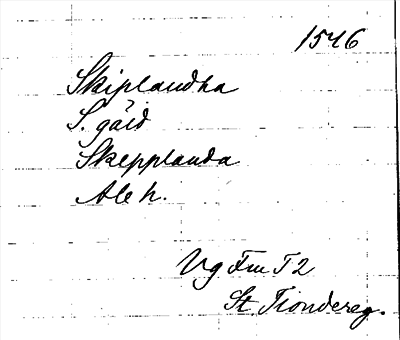 1546
Skiplandha
S. gärd
Skepplanda
Ale h.
Vg Fru T 2
St Tiondereg.